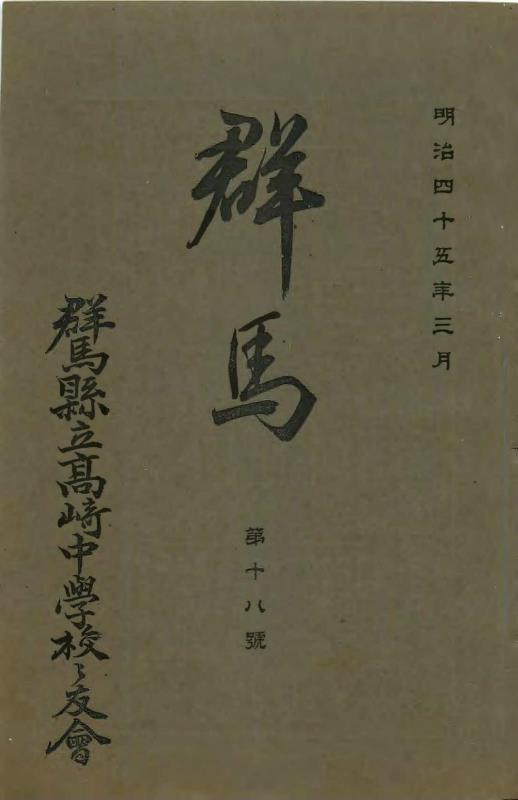 明治四十五年三月
群馬
第十八號
群馬縣立髙崎中學校〻友會